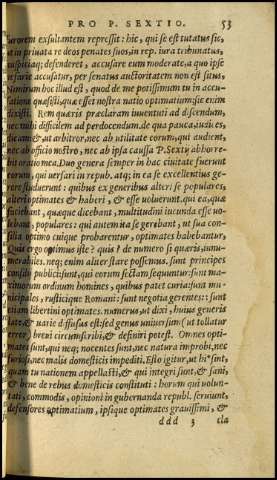 PRO P. SEXTIO. 53
furorem exsultantem repressit: hic, qui se est tutatus sic,
ut in priuata re deos penates suos, in rep. iura tribunatus,
auspitiaq; defenderet, accusare eum moderate, a quo ipse
nefarie accusatur, per senatus auctoritatem non est situs,
Nimirum hoc illud est, quod de me potissimum tu in accu-
satione quæsisti, quæ esset nostra natio optimatium: sic enim
dixisti. Rem quæris præclaram iuuentuti ad discendum,
nec mihi difficilem ad perdocendum. de qua pauca, iudices,
dicam: & ut arbitror, nec ab utilitate eorum, qui audient,
nec ab officio nostro, nec ab ipsa caussa P. Sexty abhorre-
bit oratio mea. Duo genera semper in hac ciuitate fuerunt
eorum, qui uersari in repub. atq; in ea se excellentius ge-
rere studuerunt: quibus ex generibus alteri se populares,
alteri optimates & haberi, & esse uoluerunt. qui ea, quæ
faciebant, quæque dicebant, multitudini iucunda esse uo-
lebant, populares: qui autem ita se gerebant, ut sua con-
silia optimo cuique probarentur, optimates habebantur.
Qui ergo optimus iste? quis? de numero si quæris, innu-
merabiles. neq; enim aliter stare possemus. sunt principes
consilii publici: sunt, qui eorum sectam sequuntur: sunt ma-
ximorum ordinum homines, quibus patet curia: sunt mu-
nicipales, rusticique Romani: sunt negotia gerentes: sunt
etiam libertini optimates. numerus, ut dixi, huius generis
late, & uarie diffusus est: sed genus uniuersum (ut tollatur
error) breui circumscribi, & definiri potest. Omnes opti-
mates sunt, qui neq; nocentes sunt, nec natura improbi, nec
furiosi, nec malis domesticis impediti. Esto igitur, ut hi sint,
quam tu nationem appellasti, & qui integri sunt, & sani,
& bene de rebus domesticis constituti: horum qui uolun-
tati, commodis, opinioni in gubernanda republ. seruiunt,
defensores optimatium, ipsique optimates grauissimi, &
ddd 3 cla